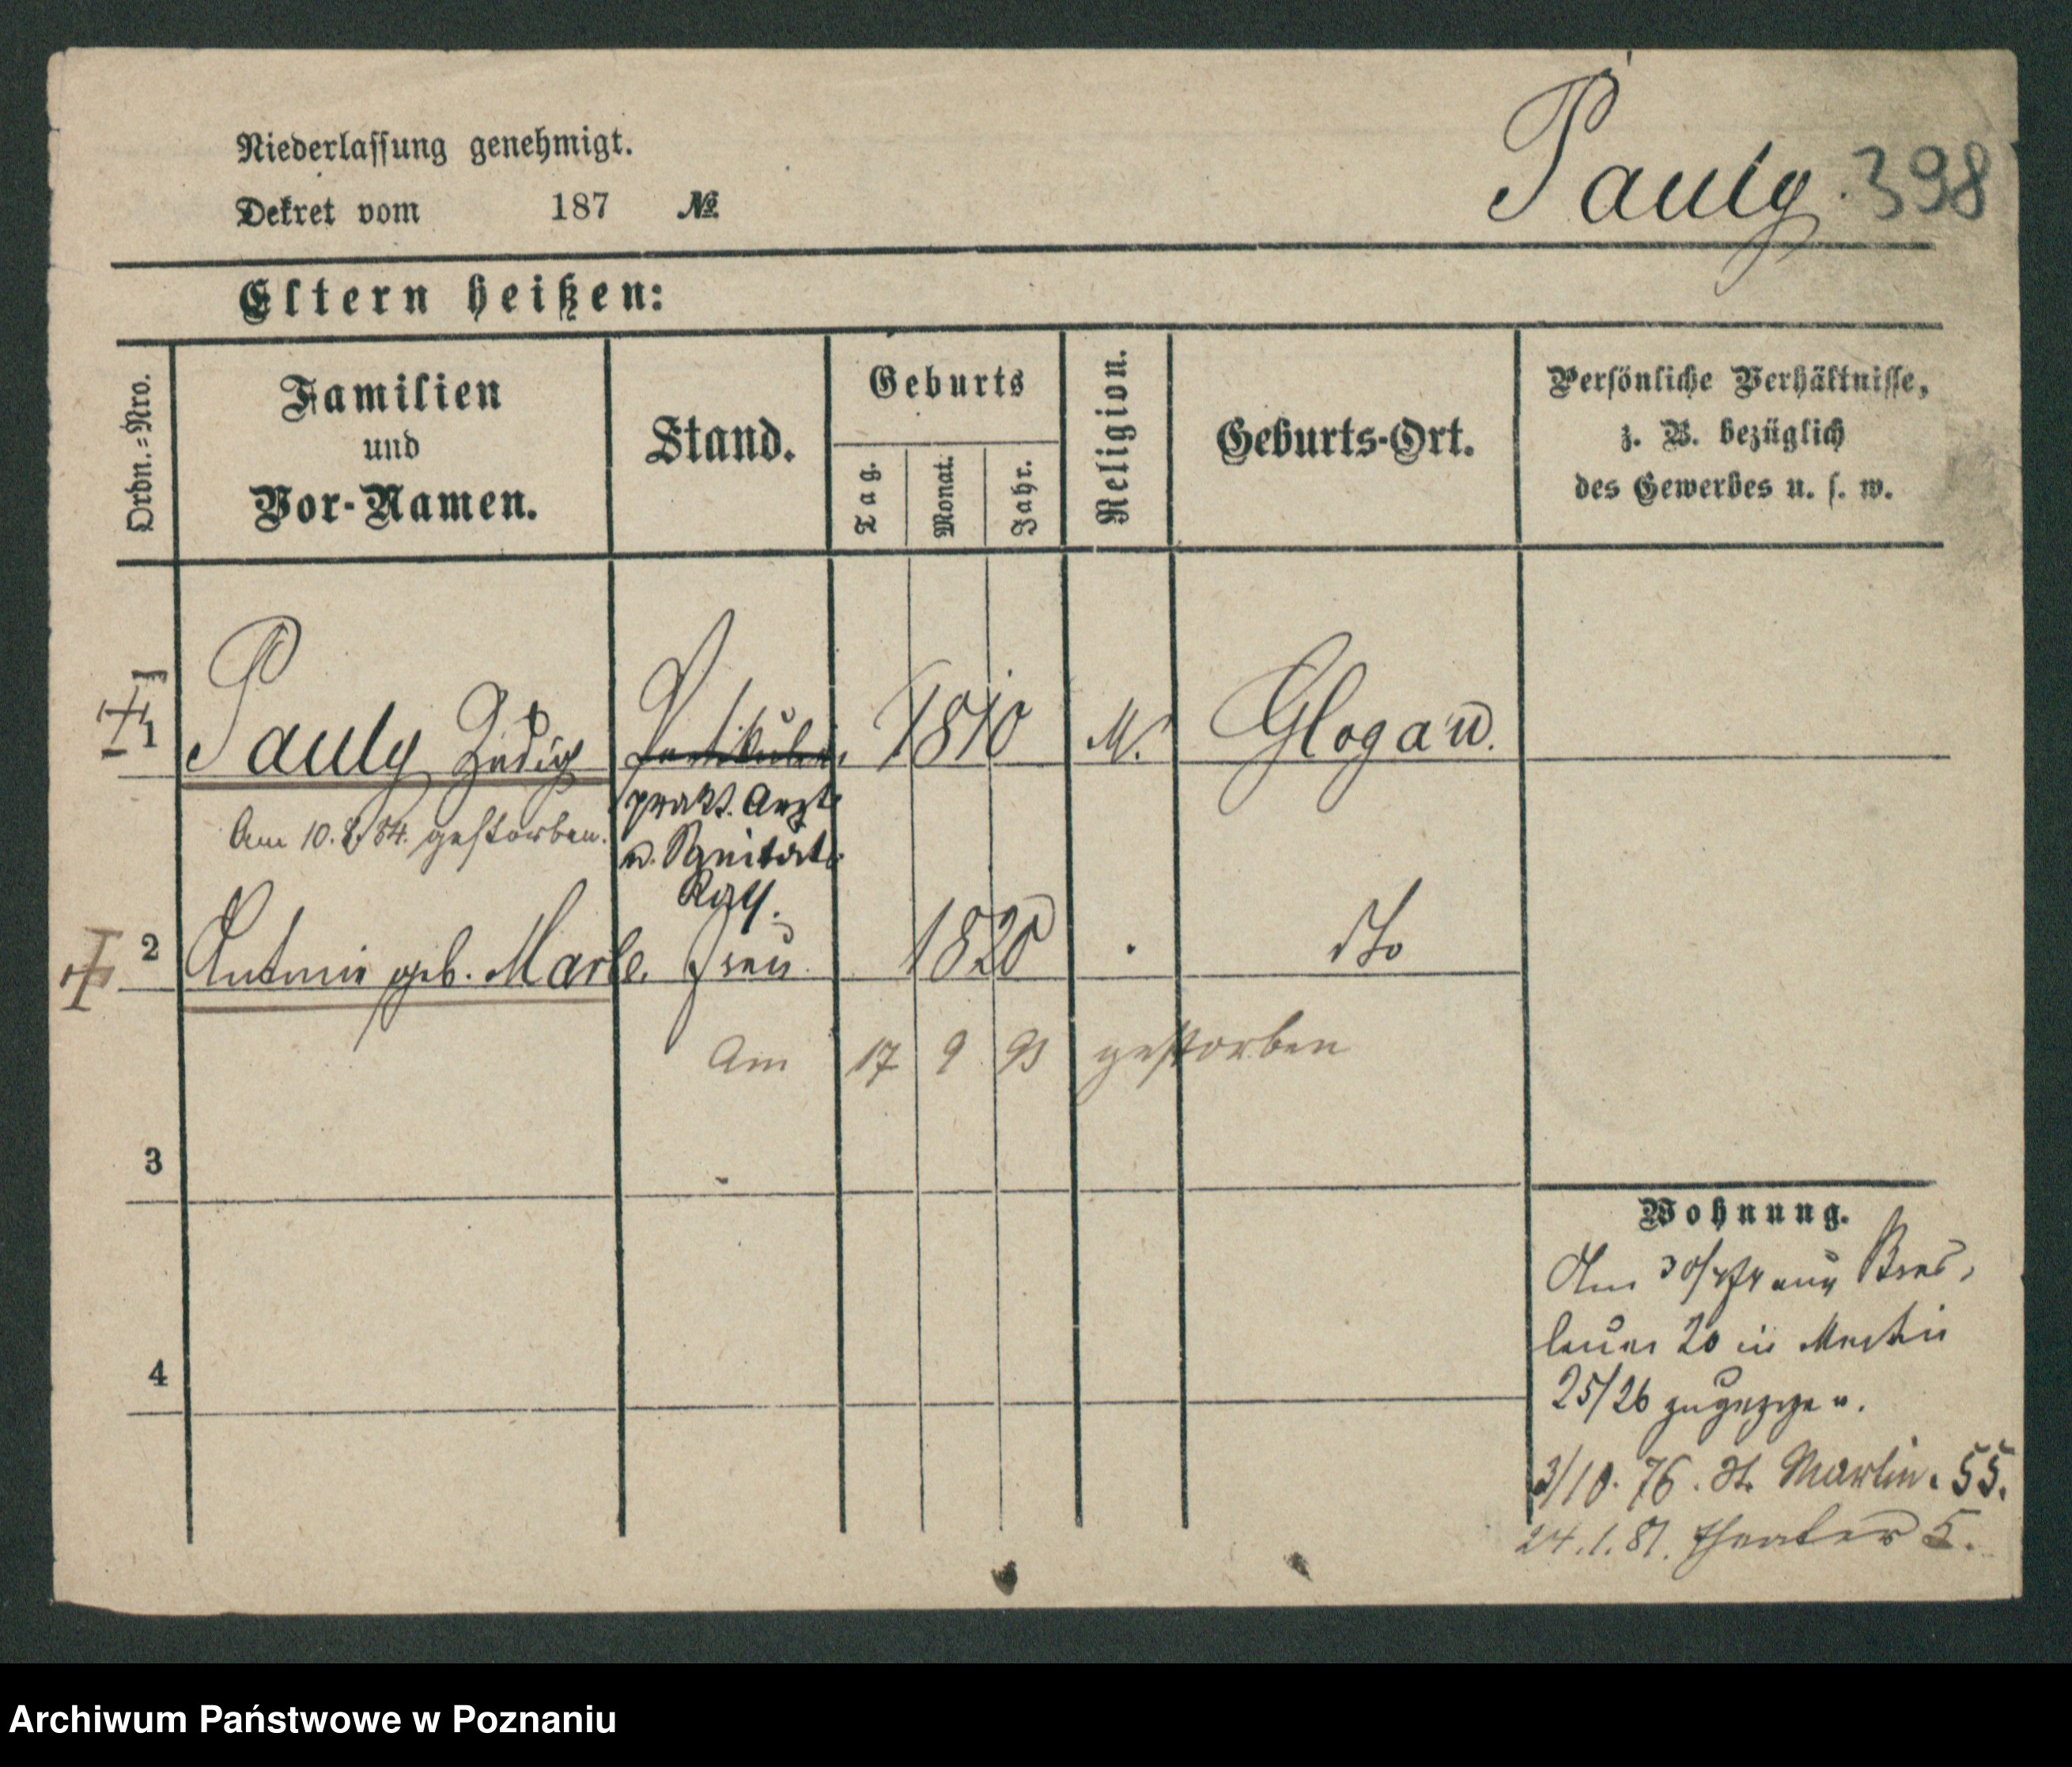 Niederlassung genehmigt.
Dekret vom 187 №
Pauly. 398
Eltern heißen:
Ordn.=Nro.
Familien
und
Vor-Namen.
Stand.
Geburts
Tag.
Monat.
Jahr.
Religion.
Geburts-Ort.
Persönliche Verhältnisse,
z. B. bezüglich
des Gewerbes u. s. w.
1 Pauly Zadig Partikulier 1810 M. Glogau.
prakt. Arzt
Am 10. 8. 84. gestorben.
u. Sanitäts
Rath.
2 Antonie geb. Marle. Frau 1820 dto
Am 17 9 93 gestorben
3
4
Wohnung.
Am 30/ aus Bres,
lauer 20 in Martin
25/26 zugezogen.
3/10. 76. St. Martin. 55.
24. 1. 81. Theater 5.
Archiwum Państwowe w Poznaniu